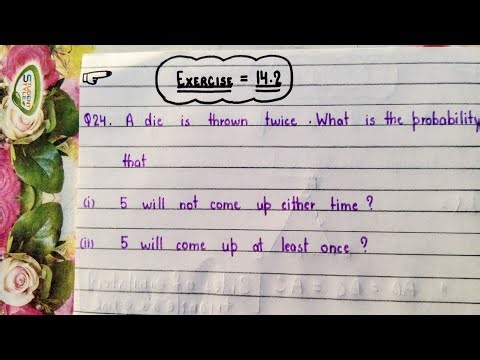 EXERCISE = 14.2
Q24. A die is thrown twice. What is the probability
that
(i) 5 will not come up either time?
(ii) 5 will come up at least once?